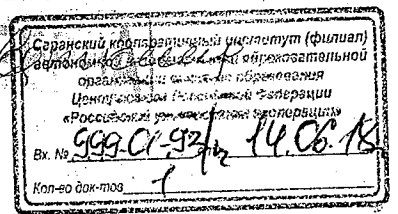 Саранский кооперативный институт (филиал)
автономной образовательной
организации высшего образования
Центросоюза Российской Федерации
«Российский университет кооперации»
Вх. № 999-01-93/ 14.06.18
Кол-во док-тов 1